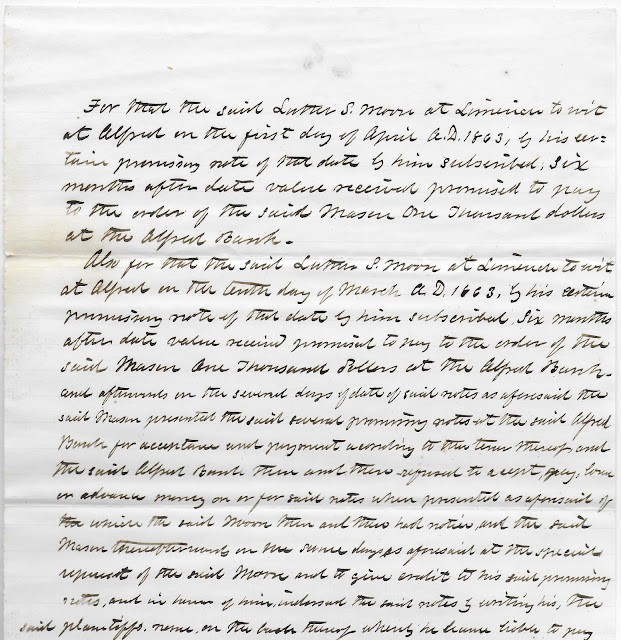 For that the said Luther S. Moore at Limerick to wit
at Alfred on the first day of April A.D. 1863, by his cer=
tain promissory note of that date by him subscribed, six
months after date value received promised to pay
to the order of the said Mason One Thousand dollars
at the Alfred Bank.
Also for that the said Luther S. Moore at Limerick to wit
at Alfred on the tenth day of March A.D. 1863, by his certain
promissory note of that date by him subscribed, six months
after date value received promised to pay to the order of the
said Mason One Thousand dollars at the Alfred Bank.
and afterwards on the several days of date of said notes as aforesaid the
said Mason presented the said several promissory notes at the said Alfred
Bank for acceptance and payment according to the tenor thereof and
the said Alfred Bank then and there refused to accept, pay, loan
or advance money on or for said notes when presented as aforesaid of
which the said Moore then and there had notice, and the said
Mason thereafterwards on the same days as aforesaid at the special
request of the said Moore and to give credit to his said promissory
notes, and in honor of him, indorsed the said notes by writing his, the
said plaintiffs. name, on the back thereof whereby he became liable to pay